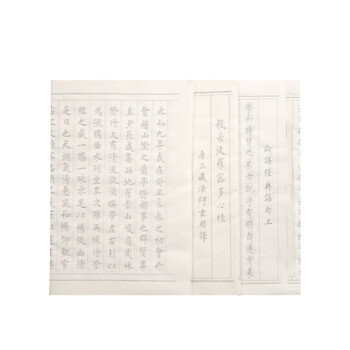 論語經典語句上
學而時習之不亦說乎有朋自遠方來
般若波羅蜜多心經
唐三藏法師玄奘譯
永和九年歲在癸丑暮春之初會於
會稽山陰之蘭亭脩禊事也群賢畢
至少長咸集此地有崇山峻嶺茂林
脩竹又有清流激湍映帶左右引以
為流觴曲水列坐其次雖無絲竹管
絃之盛一觴一詠亦足以暢敘幽情
是日也天朗氣清惠風和暢仰觀宇